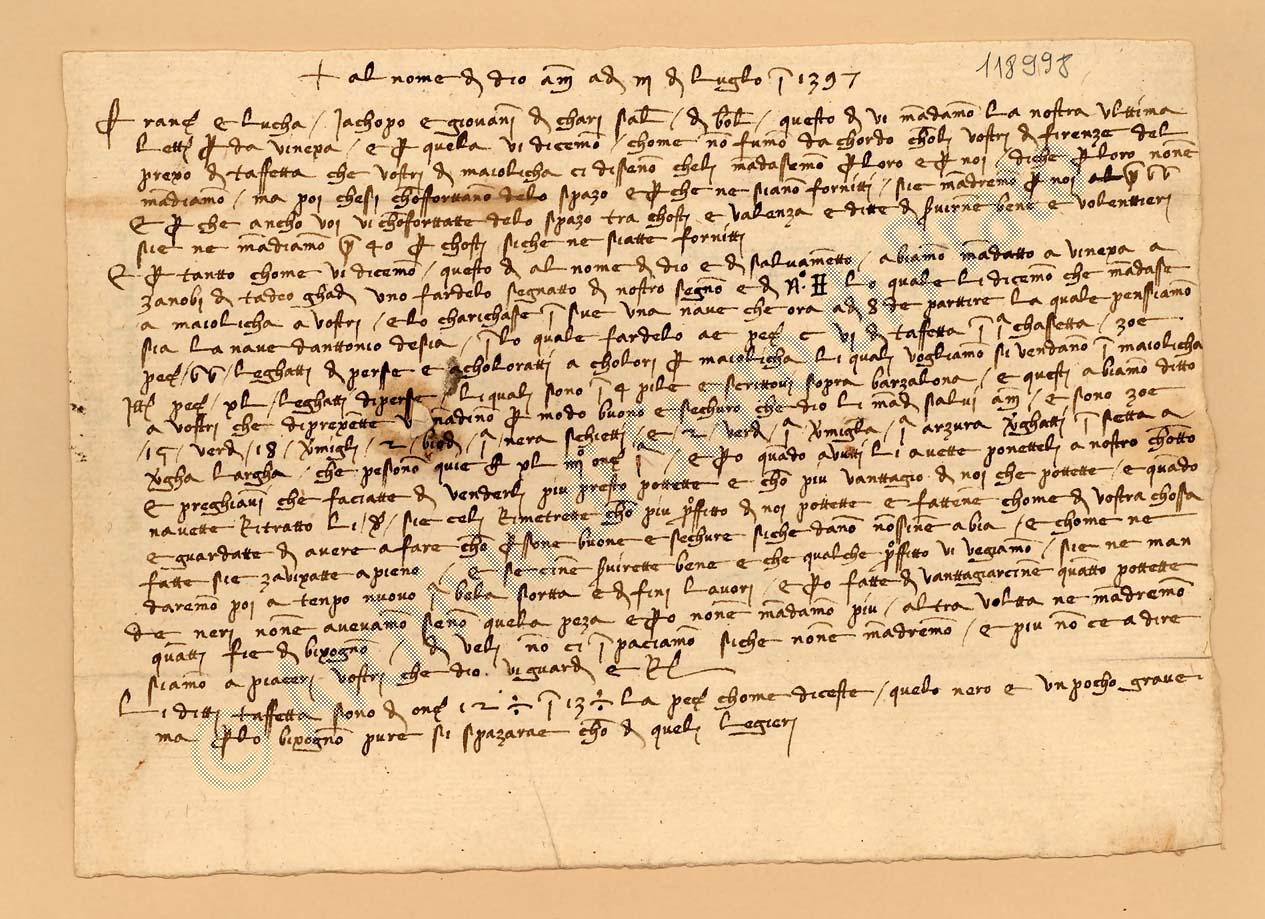 118998
+ al nome di dio am̄ adi iii di luglo ī 1397
Franc. e Lucha / Jachopo e giovanī di chari sal̄ / di bol̄ / questo di vi mādamo la nostra ulttima
lett. p da vinexa / e p quela vi dicemo / chome nō fumo dachordo choli vostri di firenze del
prexo di taffetta che vostri di maiolicha ci disseno cheli mādasemo p loro e p noi / diche p loro nonē
mādiamo / ma poi chesi chōforttano delo spazo e p che ne siano fornitti / sie mādremo p noi
E p che ancho voi vi chōforttatte delo spazo tra chosti e valenza e ditte di svirne bene e volenttieri
sie ne mādiamo 40 p chosti siche ne siatte fornitti
E p tantto chome vi dicemo / questo di al nome di dio e di salvamētto / abiamo mādatto a vinexa a
zanobi di tadeo ghadi uno fardelo segnatto di nostro segno e di n° II lo quale li dicemo che mādase
a maiolicha a vostri / e lo charichase ī sue una nave che ora adi 8 de parttire la quale pensiamo
sia la nave danttonio desia / ī lo quale fardelo ae pec. c vi di taffetta ī ī chassetta / zoe
pec. / leghatti di perse e acholoratti a cholori p maiolicha li quali vogliamo si vendano ī maiolicha
Itt. pec. / xl / leghatti di perse / li quali sono ī 4 pile e scrittovi sopra barzalona / e questi abiamo ditto
a vostri che di prexentte v mādino p modo buono e sechuro che dio li mādi salvi am̄ / e sono zoe
/ 15 / verdi / 18 / vmigli / 2 / biodi / ī nera schietti / e / 2 / verdi / ī vmigla / ī arzura vghatti ī setta a
vgha largha / che pessono quie xl iiii onc. / e pō quādo avutti li avette ponetteli a nostro chōtto
E preghiāvi che faciatte di venderli piu presto pottette e chō piu vanttagio di noi che pottette / e quādo
navette ritratto li / / sie celi rimetrette chō piu pffitto di noi pottette e fattene chome di vostra chossa
e guardatte di avere a fare chō pssone buone e sechure siche danō nōssine abia / e chome ne
fatte sie zavixatte apieno / e se cine svirette bene e che qualche pffitto vi vegiamo / sie ne man
daremo poi a tenpo nuovo di bela sortta e di fini lavori / e pō fatte di vanttagiarcine quatto pottette
de neri nonē avevamo seno quela peza e pō nonē mādamo piu / altra voltta ne mādremo
quatti fie di bixogno / di veli nō ci īpaciamo siche nonē mādremo / e piu nō ce a dire
siamo a piaceri vostri che dio vi guardi e
Li ditti taffetta sono di onc. 12 ÷ ī 13 ÷ la pec. chome diceste / quelo nero e un pocho grave
ma plo bixogno pure si spazarae chō di queli legieri